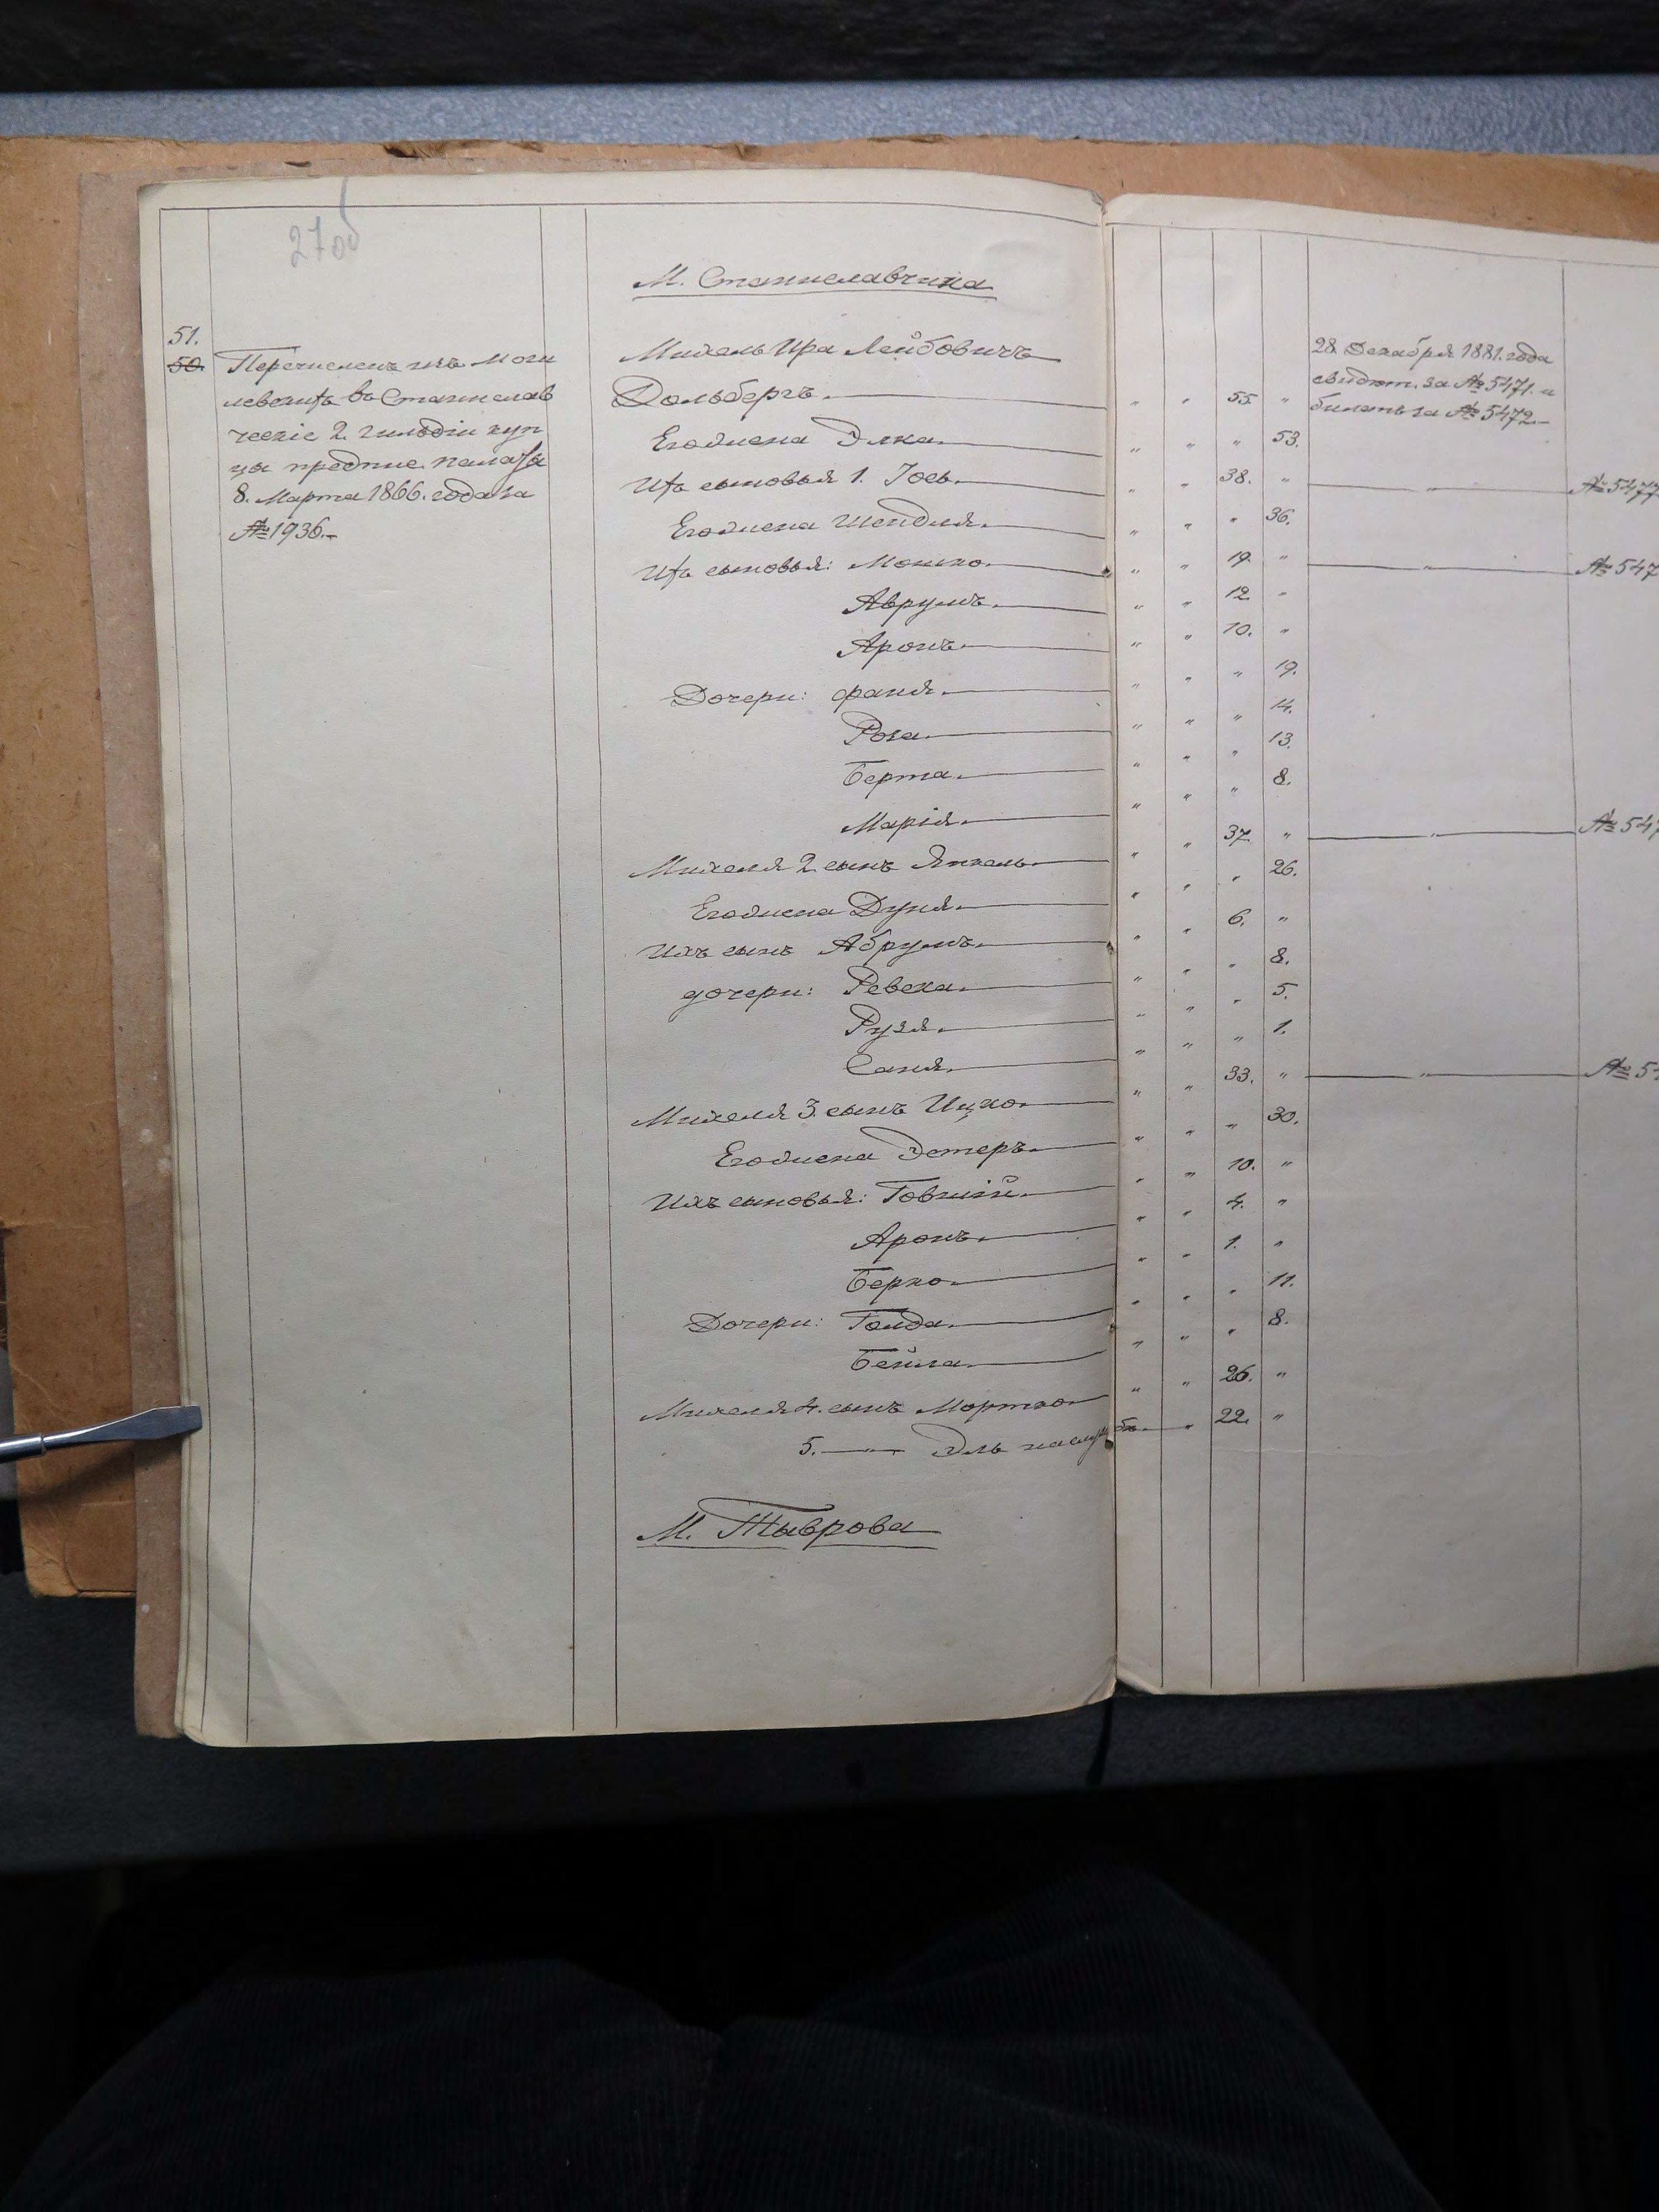 27об
М. Станиславчика
51.
50.
Перечислен изъ Моги
левскихъ въ Станислав
ческіе 2. гильдіи куп
цы предпис. палаты
8. Марта 1866. года за
№ 1936.
Михель Лейбовичъ
Дольбергъ. " " 55. "
Его жена Элка. " " " 53.
Ихъ сыновья 1. Іось. " " 38. " " № 5477
Его жена Шендля. " " " 36.
Ихъ сыновья: Мошко. " " 19. " " № 547
Аврумъ. " " 12. "
Аронъ. " " 10. "
Дочери: Фаня. " " " 19.
Роза. " " " 14.
Берта. " " " 13.
Марія. " " " 8.
Михеля 2. сынъ Янкель. " " 37. " " № 547
Его жена Дуня. " " " 26.
Ихъ сынъ Абрумъ. " " 6. "
дочери: Ревека. " " " 8.
Рузя. " " " 5.
Саня. " " " 1.
Михеля 3. сынъ Ицко. " " 33. " " № 54
Его жена Эстеръ. " " " 30.
Ихъ сыновья: Говшій. " " 10. "
Аронъ. " " 4. "
Берко. " " 1. "
Дочери: Голда. " " " 11.
Бейла. " " " 8.
Михеля 4. сынъ Мортко " " 26. "
5. " Эль на службѣ " 22. "
М. Тыврова
28. Декабря 1881. года
свидѣт. за № 5471. и
билетъ за № 5472.